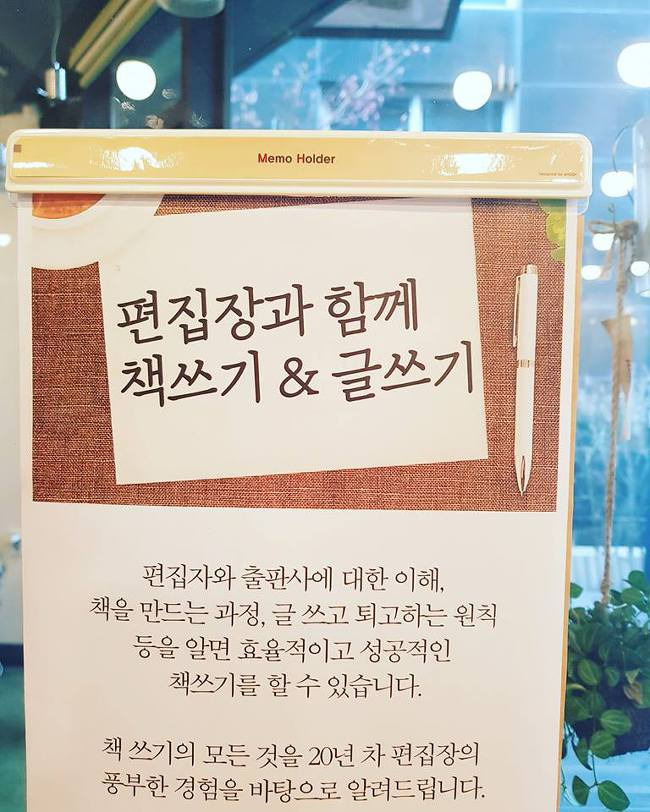 Memo Holder
편집장과 함께
책쓰기 & 글쓰기
편집자와 출판사에 대한 이해,
책을 만드는 과정, 글 쓰고 퇴고하는 원칙
등을 알면 효율적이고 성공적인
책쓰기를 할 수 있습니다.
책 쓰기의 모든 것을 20년 차 편집장의
풍부한 경험을 바탕으로 알려드립니다.